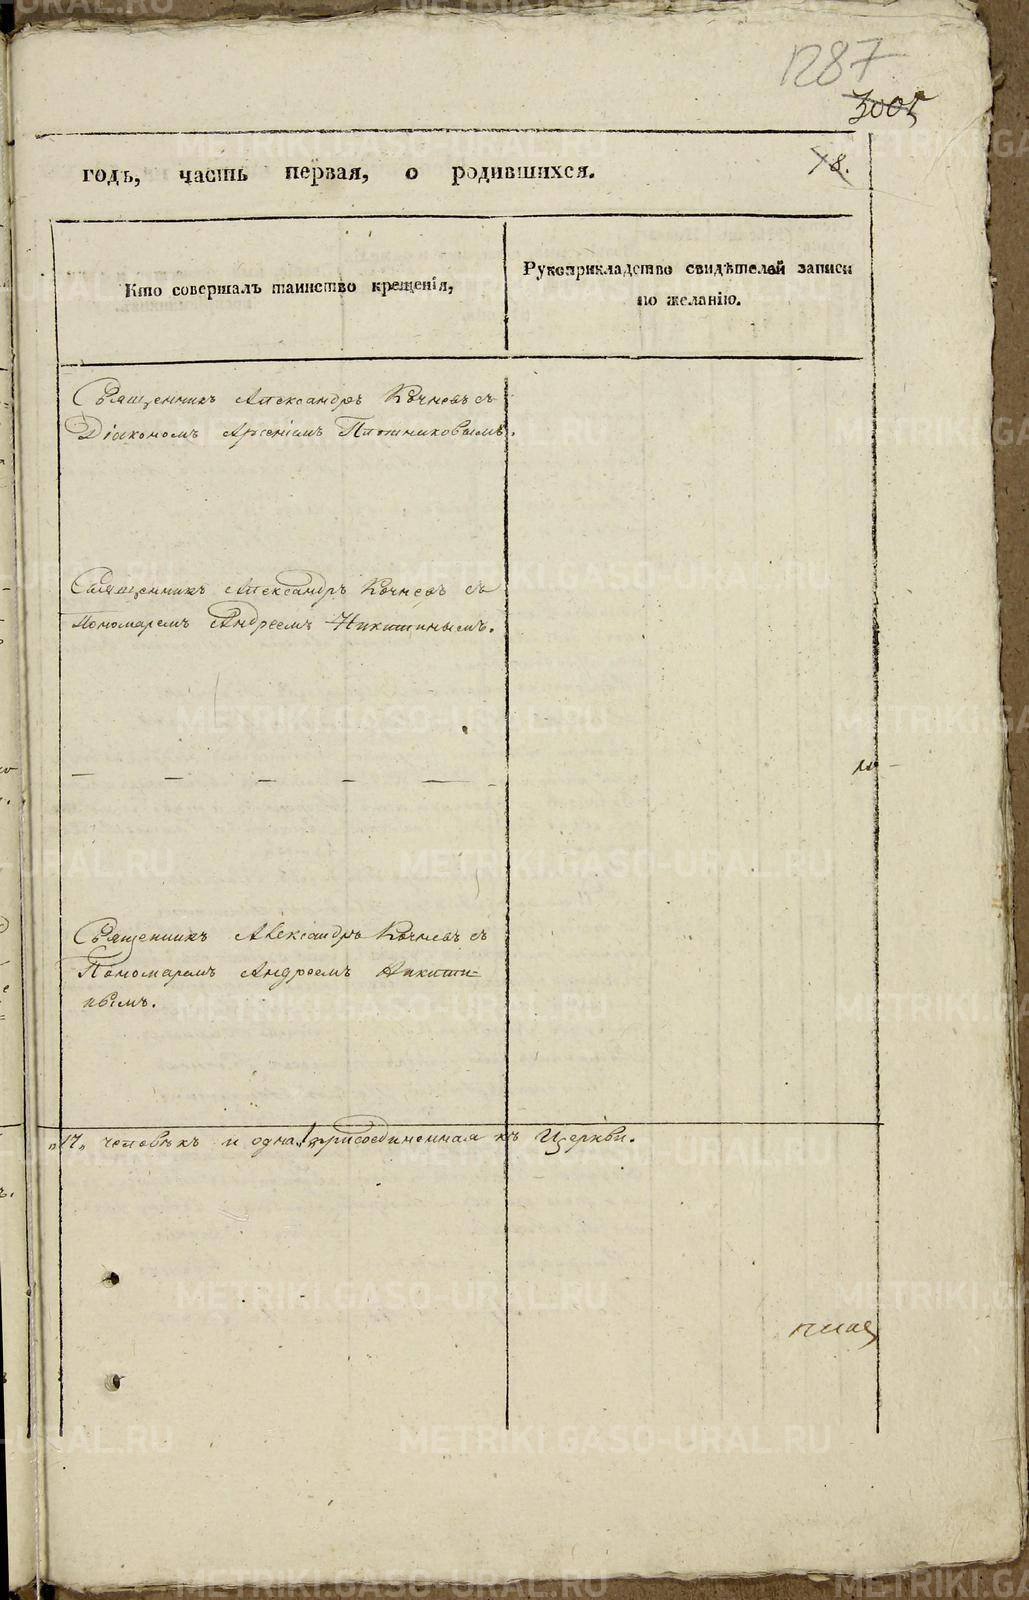 1287
3005
годъ, часть первая, о родившихся.
18.
Кто совершалъ таинство крещенія,
Рукоприкладство свидѣтелей записи
по желанію.
Священникъ Александръ Кочневъ съ
Діакономъ Арсеніемъ Плотниковымъ.
Священникъ Александръ Кочневъ съ
Пономаремъ Андреемъ Никитинымъ.
Священникъ Александръ Кочневъ съ
Пономаремъ Андреемъ Никити=
нымъ.
„17„ человѣкъ и одна присоединенная къ Церкви.
METRIKI.GASO-URAL.RU